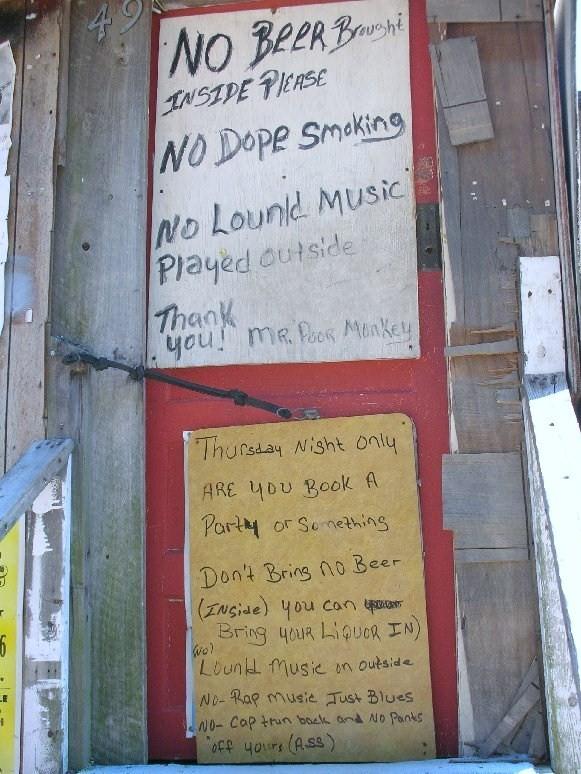 49
NO BEER Brought
INSIDE PlEASE
NO DOPE Smoking
No Lounld Music
Played outside
Thank
you! MR. POOR MonKey
Thursday Night only
ARE YOU BOOK A
Party or Something
Don't Bring no Beer
(INside) you can
Bring YOUR LiQUOR IN)
(No)
Lounld Music on outside
No- Rap music Just Blues
No- Cap trun back and No Pants
off yours (ASS)
6